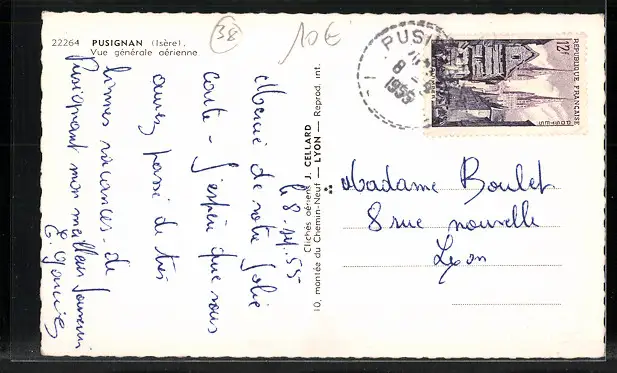 22264 PUSIGNAN (Isère).
Vue générale aérienne
38
10€
le 8.
Merci de votre jolie
carte - J'espère que vous
avez passé de très
bonnes vacances - de
Pusignan mon meilleur souvenir
Clichés aériens J. CELLARD
10, montée du Chemin-Neuf — LYON — Reprod. int.
PUSI
8
1955
12F
REPUBLIQUE FRANÇAISE
POSTES
Madame Boulet
8 rue nouvelle
Lyon